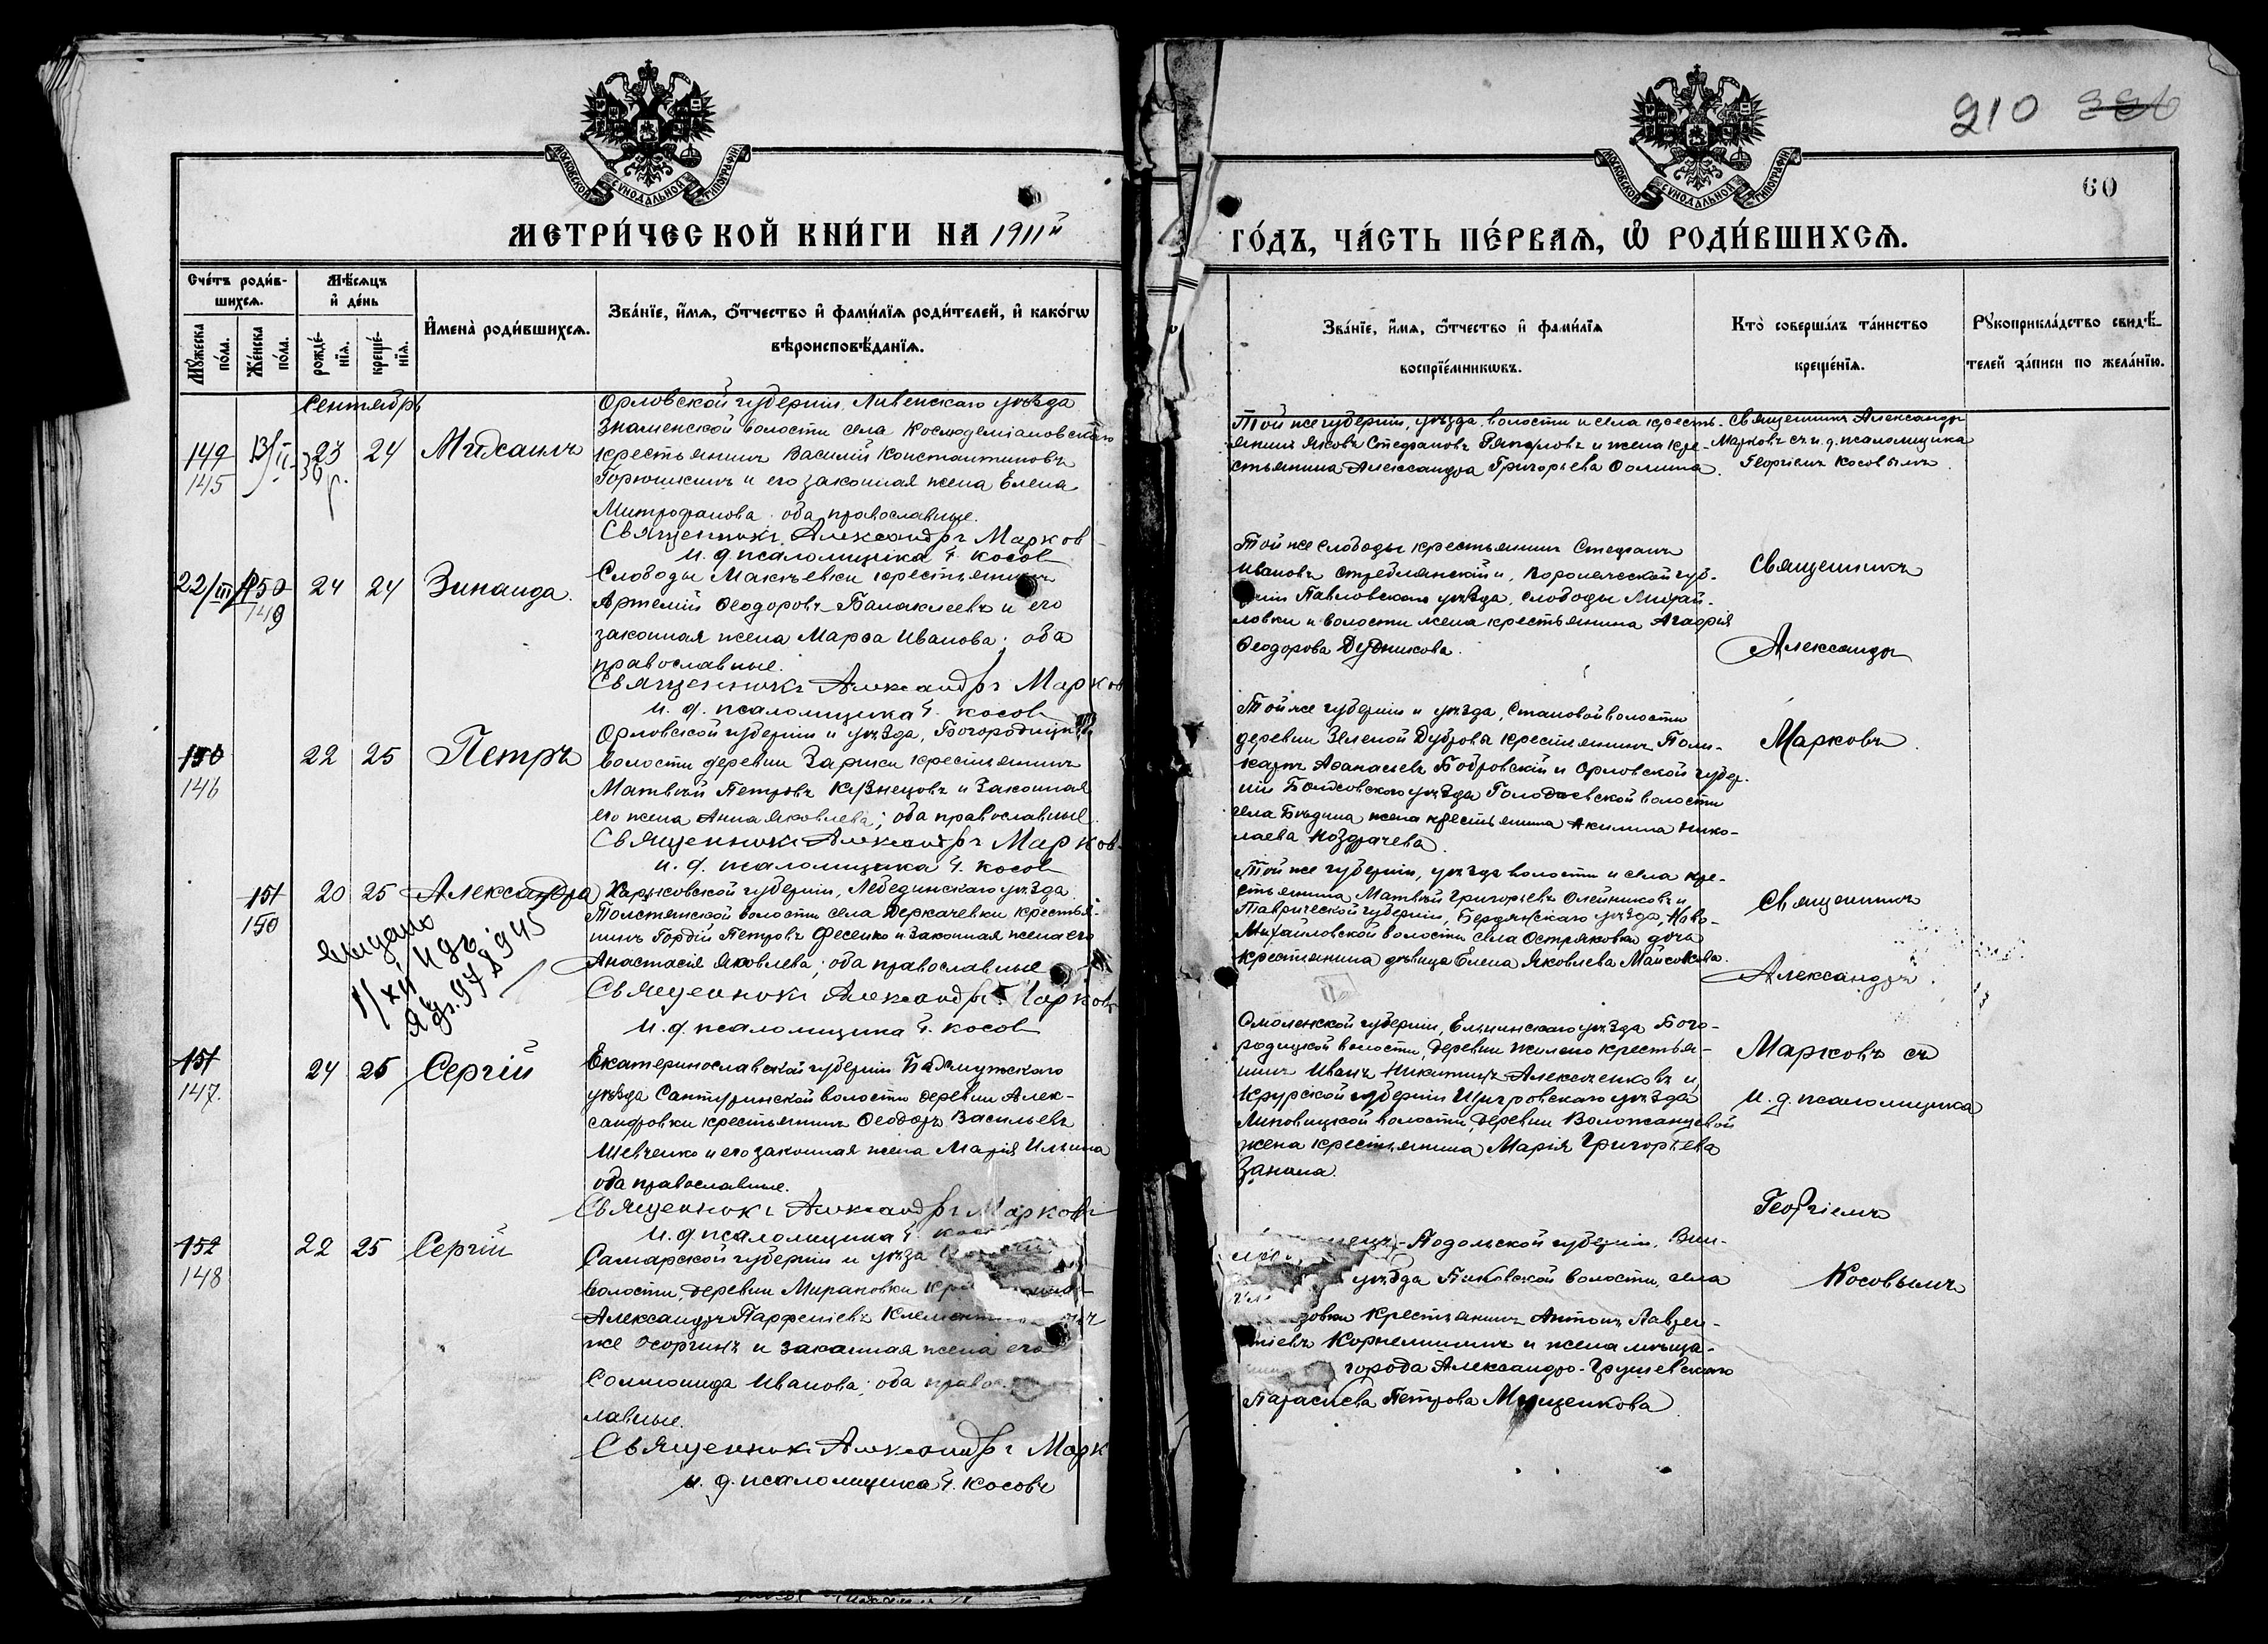 МОСКОВСКОЙ СѴНОДАЛЬНОЙ ТИПОГРАФІИ
МЕТРИ́ЧЕСКОЙ КНИ́ГИ НА 1911й
Сче́тъ роди́в-
шихсѧ.
Мꙋ́жеска по́ла.
Же́нска по́ла.
Мѣ́сѧцъ
и҆ де́нь
рожде́-
нїѧ.
креще́-
нїѧ.
И҆мена̀ роди́вшихсѧ.
Зва́нїе, и҆́мѧ, ѻ҆́тчество и҆ фами́лїѧ роди́телей, и҆ како́гѡ
вѣроисповѣ́данїѧ.
Сентябрь
149
145
23
24
Михаилъ
Орловской губерніи, Ливенскаго уѣзда
Знаменской волости села Космодеміановскаго
крестьянинъ Василій Константиновъ
Горюшкинъ и его законная жена Елена
Митрофанова. оба православные.
Священникъ Александръ Марков
И. д. псаломщика Г. Косов
22/III
150
149
24
24
Зинаида.
Слободы Макѣевки крестьянинъ
Артемій Ѳеодоровъ Балаклеевъ и его
законная жена Марѳа Иванова; оба
православные.
Священникъ Александръ Марков
И. д. псаломщика Г. Косов
150
146
22
25
Петръ
Орловской губерніи и уѣзда, Богородицкой
волости деревни Зарики крестьянинъ
Матвѣй Петровъ Кузнецовъ и законная
его жена Анна Яковлева; оба православные.
Священникъ Александръ Марков
И. д. псаломщика Г. Косов
151
150
20
25
Александра
Харьковской губерніи, Лебединскаго уѣзда
Толстянской волости села Деркачевки крестья-
нинъ Гордій Петровъ Фесенко и законная жена его
Анастасія Яковлева; оба православные
Священникъ Александръ Марков
И. д. псаломщика Г. Косов
151
147.
24
25
Сергій
Екатеринославской губерніи Бахмутского
уѣзда Сантуринской волости деревни Алек-
сандровки крестьянинъ Ѳеодоръ Васильевъ
Шевченко и его законная жена Марія Ильина
оба православные.
Священникъ Александръ Марков
И. д. псаломщика Г. Косов
152
148
22
25
Сергій
Самарской губерніи и уѣза
волости, деревни Мирановки
Александръ Парфеніевъ
же Осоргинъ и законная жена его
Соломонида Иванова; оба право
лавные.
Священникъ Александръ Марк
И. д. псаломщика Г. Косовъ
210
МОСКОВСКОЙ СѴНОДАЛЬНОЙ ТИПОГРАФІИ
60
ГО́ДЪ, ЧА́СТЬ ПЕ́РВАѦ, Ѡ҆ РОДИ́ВШИХСѦ.
Зва́нїе, и҆́мѧ, ѻ҆́тчество и҆ фами́лїѧ
воспрїе́мникѡвъ.
Кто̀ соверша́лъ та́инство
креще́нїѧ.
Рꙋкоприкла́дство свидѣ́-
телей за́писи по жела́нїю.
Той же губерніи, уѣзда, волости и села кресть-
янинъ Яковъ Стефановъ и жена кре-
стьянина Александра Григорьева Ѳомина.
Священникъ Александръ
Марковъ съ и. д. псаломщика
Георгіемъ Косовымъ.
Той же слободы крестьянинъ Стефанъ
Ивановъ Стреблянскій и, Воронежской губ-
ерніи Павловскаго уѣзда, слободы Михай-
ловки и волости жена крестьянина Агафія
Ѳеодорова Дудникова.
Священникъ
Александръ
Той же губерніи и уѣзда, Становой волости
деревни Зеленой Дубровы крестьянинъ Поли-
карпъ Аѳанасьевъ Бобровскій и Орловской губер-
ніи Болховского уѣзда волости
села жена крестьянина Акилина Нико-
лаева Ноздрачева.
Марковъ.
Той же губерніи, уѣзда волости и села кре-
стьянина Матвѣй Григорьевъ Олейниковъ и
Таврической губерніи, Бердянскаго уѣзда, Ново-
Михайловской волости села Остряковки дочь
крестьянина дѣвица Елена Яковлева
Священникъ
Александръ.
Смоленской губерніи, Ельнинскаго уѣзда Бого-
родицкой волости, деревни крестья-
нинъ Иванъ Никитинъ Алексѣенковъ и,
Курской губерніи Щигровскаго уѣзда
Липовицкой волости, деревни
жена крестьянина Марія Григорьева
Занина.
Марковъ съ
И. д. псаломщика
Георгіемъ
Подольской губерніи, Вин-
уѣзда Пиковской волости, села
крестьянинъ Антонъ Лаврен-
тіевъ и жена мѣща-
города Александро-Грушевскаго
Параскева Петрова Мищенкова
Косовымъ